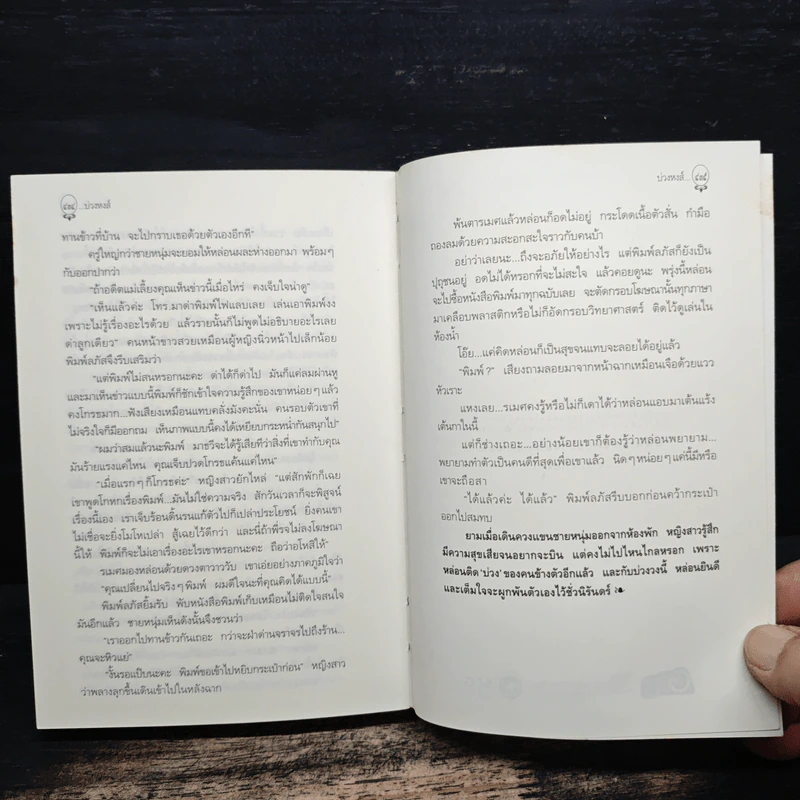 ...บ่วงหงส์
ทานข้าวที่บ้าน จะไปกราบเธอด้วยตัวเองอีกที"
ครู่ใหญ่กว่าชายหนุ่มจะยอมให้หล่อนผละห่างออกมา พร้อมๆ
กับออกปากว่า
"ถ้าอดีตแม่เลี้ยงคุณเห็นข่าวนี้เมื่อไหร่ คงเจ็บใจน่าดู"
"เห็นแล้วค่ะ โทร.มาด่าพิมพ์ไฟแลบเลย เล่นเอาพิมพ์งง
เพราะไม่รู้เรื่องอะไรด้วย แล้วรายนั้นก็ไม่พูดไม่อธิบายอะไรเลย
ด่าลูกเดียว" คนหน้าขาวสวยเหมือนผู้หญิงนิ่วหน้าไปเล็กน้อย
พิมพ์ลภัสจึงรีบเสริมว่า
"แต่พิมพ์ไม่สนหรอกนะคะ ด่าได้ก็ด่าไป มันก็แค่ลมผ่านหู
และมาเห็นข่าวแบบนี้พิมพ์ก็ชักเข้าใจความรู้สึกของเขาหน่อยๆ แล้ว
คงโกรธมาก...ฟังเสียงเหมือนแทบคลั่งมังคะนั่น คนรอบตัวเขาที่
ไม่จริงใจก็มีออกถม เห็นภาพแบบนี้คงได้เหยียบกระหน่ำกันสนุกไป"
"ผมว่าสมแล้วนะพิมพ์ มาธวีจะได้รู้เสียทีว่าสิ่งที่เขาทำกับคุณ
มันร้ายแรงแค่ไหน คุณเจ็บปวดโกรธแค้นแค่ไหน"
"เมื่อแรกๆ ก็โกรธค่ะ" หญิงสาวยักไหล่ "แต่สักพักก็เฉย
เขาพูดโกหกเรื่องพิมพ์...มันไม่ใช่ความจริง สักวันเวลาก็จะพิสูจน์
เรื่องนี้เอง เราเจ็บร้อนดิ้นรนแก้ตัวไปก็เปล่าประโยชน์ ยิ่งคนเขา
ไม่เชื่อจะยิ่งโมโหเปล่า สู้เฉยไว้ดีกว่า และนี่ถ้าพี่รจไม่ลงโฆษณา
นี้ให้ พิมพ์ก็จะไม่เอาเรื่องอะไรเขาหรอกนะคะ ถือว่าอโหสิให้"
รเมศมองหล่อนด้วยดวงตาวาววับ เขาเอ่ยอย่างภาคภูมิใจว่า
"คุณเปลี่ยนไปจริงๆ พิมพ์ ผมดีใจนะที่คุณคิดได้แบบนี้"
พิมพ์ลภัสยิ้มรับ พับหนังสือพิมพ์เก็บเหมือนไม่ติดใจสนใจ
มันอีกแล้ว ชายหนุ่มเห็นดังนั้นจึงชวนว่า
"เราออกไปทานข้าวกันเถอะ กว่าจะฝ่าด่านจราจรไปถึงร้าน...
คุณจะหิวแย่"
"งั้นรอแป๊บนะคะ พิมพ์ขอเข้าไปหยิบกระเป๋าก่อน" หญิงสาว
ว่าพลางลุกขึ้นเดินเข้าไปในหลังฉาก
บ่วงหงส์...
พ้นตารเมศแล้วหล่อนก็อดไม่อยู่ กระโดดเนื้อตัวสั่น กำมือ
ถองลมด้วยความสะอกสะใจราวกับคนบ้า
อย่าว่าเลยนะ...ถึงจะอภัยให้อย่างไร แต่พิมพ์ลภัสก็ยังเป็น
ปุถุชนอยู่ อดไม่ได้หรอกที่จะไม่สะใจ แล้วคอยดูนะ พรุ่งนี้หล่อน
จะไปซื้อหนังสือพิมพ์มาทุกฉบับเลย จะตัดกรอบโฆษณานั้นทุกภาษา
มาเคลือบพลาสติกหรือไม่ก็อัดกรอบวิทยาศาสตร์ ติดไว้ดูเล่นใน
ห้องน้ำ
โอ๊ย...แค่คิดหล่อนก็เป็นสุขจนแทบจะลอยได้อยู่แล้ว
"พิมพ์?" เสียงถามลอยมาจากหน้าฉากเหมือนเจือด้วยแวว
หัวเราะ
แหงเลย...รเมศคงรู้หรือไม่ก็เดาได้ว่าหล่อนแอบมาเต้นแร้ง
เต้นกาในนี้
แต่ก็ช่างเถอะ...อย่างน้อยเขาก็ต้องรู้ว่าหล่อนพยายาม...
พยายามทำตัวเป็นคนดีที่สุดเพื่อเขาแล้ว นิดๆ หน่อยๆ แค่นี้มีหรือ
เขาจะถือสา
"ได้แล้วค่ะ ได้แล้ว" พิมพ์ลภัสรีบบอกก่อนคว้ากระเป๋า
ออกไปสมทบ
ยามเมื่อเดินควงแขนชายหนุ่มออกจากห้องพัก หญิงสาวรู้สึก
มีความสุขเสียจนอยากจะบิน แต่คงไม่ไปไหนไกลหรอก เพราะ
หล่อนติด 'บ่วง' ของคนข้างตัวอีกแล้ว และกับบ่วงวงนี้ หล่อนยินดี
และเต็มใจจะผูกพันตัวเองไว้ชั่วนิรันดร์